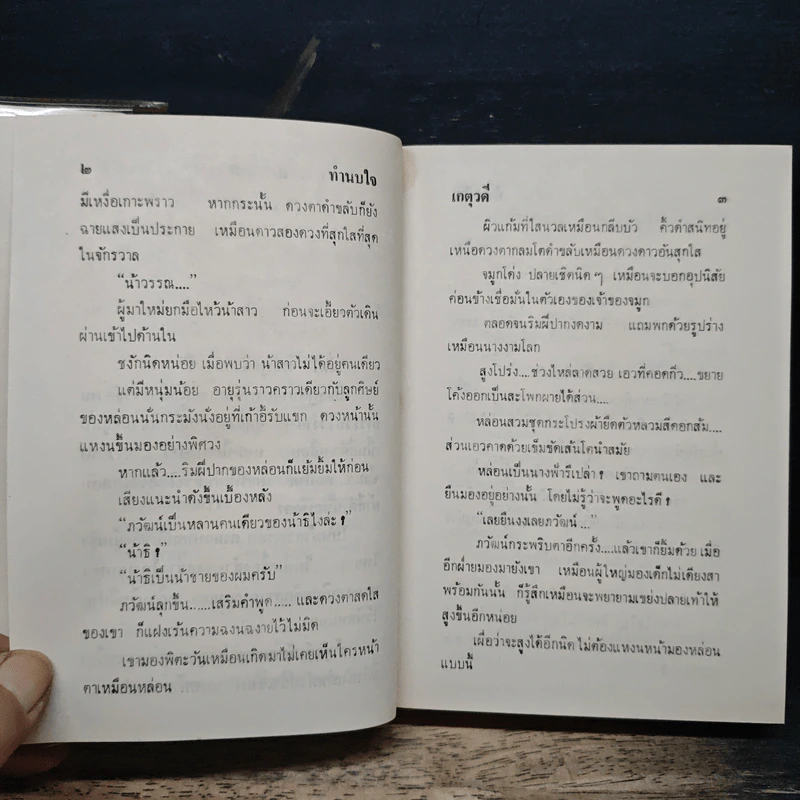 ๒
ทำนบใจ
มีเหงื่อเกาะพราว หากกระนั้น ดวงตาดำขลับก็ยัง
ฉายแสงเป็นประกาย เหมือนดาวสองดวงที่สุกใสที่สุด
ในจักรวาล
“น้าวรรณ....”
ผู้มาใหม่ยกมือไหว้น้าสาว ก่อนจะเอี้ยวตัวเดิน
ผ่านเข้าไปด้านใน
ชงักนิดหน่อย เมื่อพบว่า น้าสาวไม่ได้อยู่คนเดียว
แต่มีหนุ่มน้อย อายุรุ่นราวคราวเดียวกับลูกศิษย์
ของหล่อนนั่นกระมังนั่งอยู่ที่เก้าอี้รับแขก ดวงหน้านั้น
แหงนขึ้นมองอย่างพิศวง
หากแล้ว....ริมฝีปากของหล่อนก็แย้มยิ้มให้ก่อน
เสียงแนะนำดังขึ้นเบื้องหลัง
“ภวัฒน์เป็นหลานคนเดียวของน้าธิไงล่ะ !”
“น้าธิ !”
“น้าธิเป็นน้าชายของผมครับ”
ภวัฒน์ลุกขึ้น......เสริมคำพูด..... และดวงตาสดใส
ของเขา ก็แฝงเร้นความฉงนฉงายไว้ไม่มิด
เขามองพิตะวันเหมือนเกิดมาไม่เคยเห็นใครหน้า
ตาเหมือนหล่อน
เกตุวดี
๓
ผิวแก้มที่ใสนวลเหมือนกลีบบัว คิ้วดำสนิทอยู่
เหนือดวงตากลมโตดำขลับเหมือนดวงดาวอันสุกใส
จมูกโด่ง ปลายเชิดนิด ๆ เหมือนจะบอกอุปนิสัย
ค่อนข้างเชื่อมั่นในตัวเองของเจ้าของจมูก
ตลอดจนริมฝีปากงดงาม แถมพกด้วยรูปร่าง
เหมือนนางงามโลก
สูงโปร่ง....ช่วงไหล่ลาดสวย เอวที่คอดกิ่ว....ขยาย
โค้งออกเป็นสะโพกผายได้ส่วน....
หล่อนสวมชุดกระโปรงผ้ายืดตัวหลวมสีดอกส้ม....
ส่วนเอวคาดด้วยเข็มขัดเส้นโตนำสมัย
หล่อนเป็นนางฟ้ารึเปล่า ! เขาถามตนเอง และ
ยืนมองอยู่อย่างนั้น โดยไม่รู้ว่าจะพูดอะไรดี !
“เลยยืนงงเลยภวัฒน์ ...”
ภวัฒน์กระพริบตาอีกครั้ง....แล้วเขาก็ยิ้มด้วย เมื่อ
อีกฝ่ายมองมายังเขา เหมือนผู้ใหญ่มองเด็กไม่เดียงสา
พร้อมกันนั้น ก็รู้สึกเหมือนจะพยายามเขย่งปลายเท้าให้
สูงขึ้นอีกหน่อย
เผื่อว่าจะสูงได้อีกนิด ไม่ต้องแหงนหน้ามองหล่อน
แบบนี้